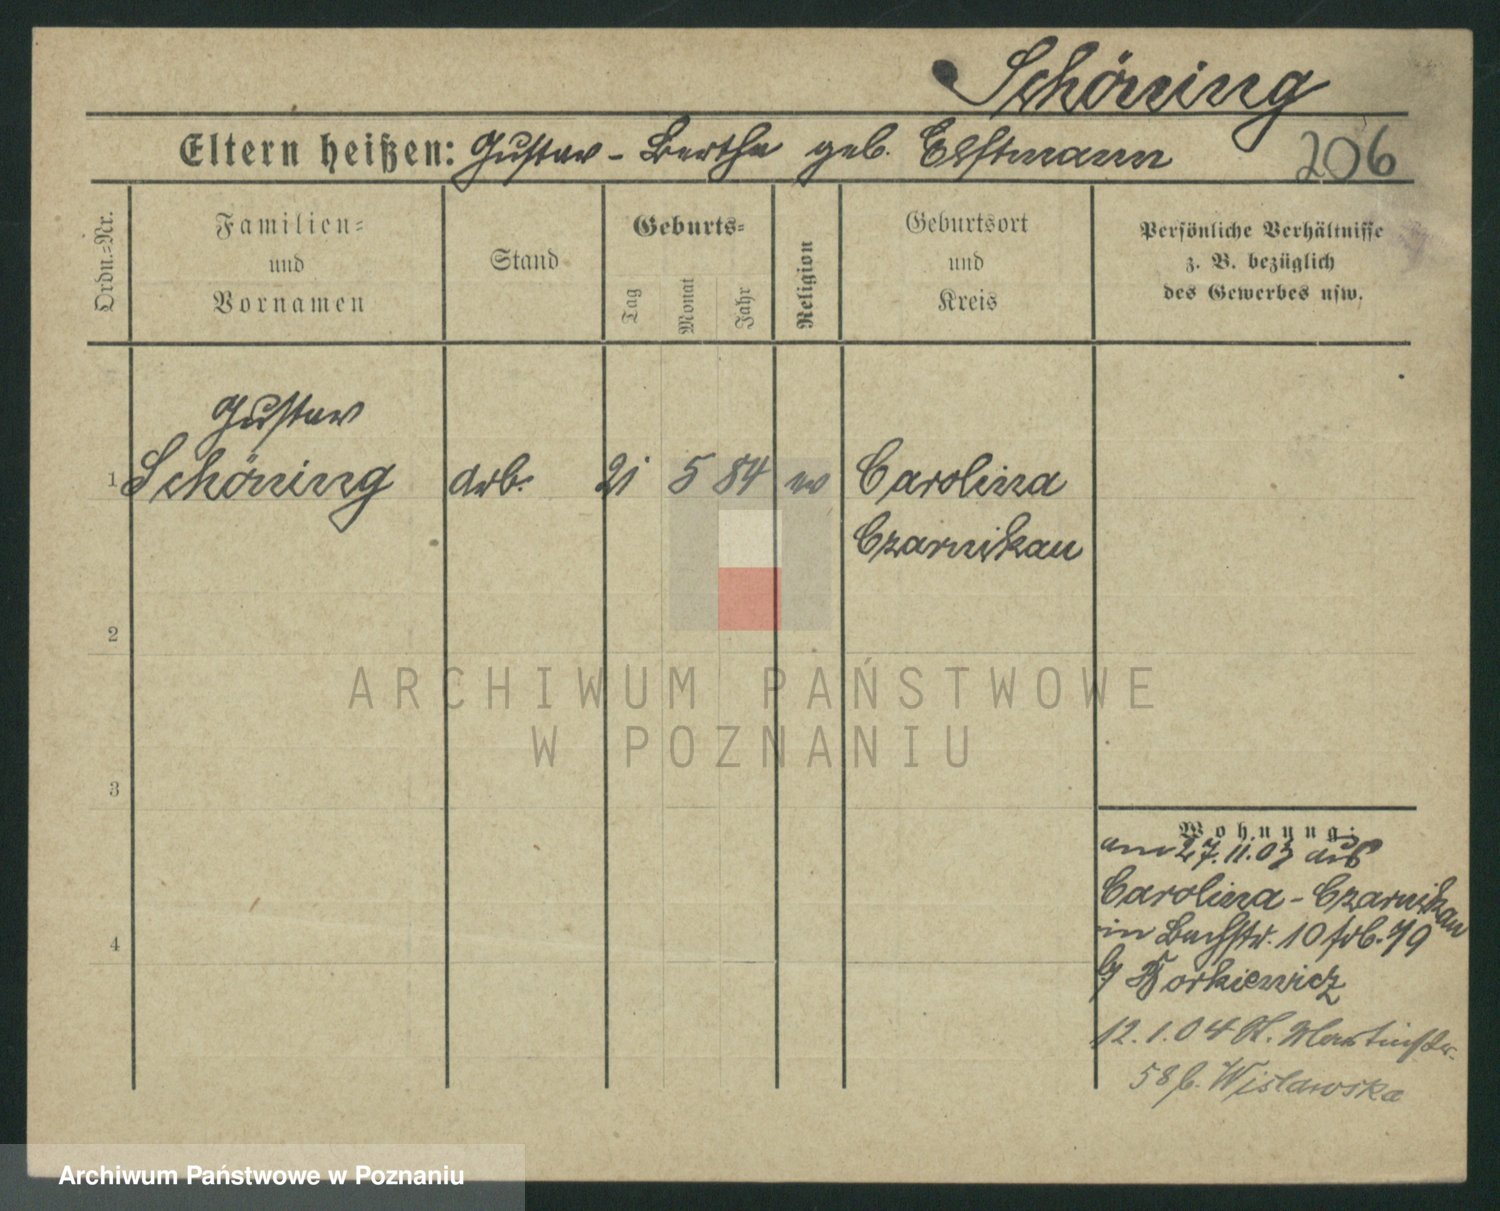 Schöning
Eltern heißen: Gustav - Bertha geb. Elstmann 206
Ordn.=Nr.
Familien=
und
Vornamen
Stand
Geburts=
Tag
Monat
Jahr
Religion
Geburtsort
und
Kreis
Persönliche Verhältnisse
z. B. bezüglich
des Gewerbes usw.
Gustav
1 Schöning arb. 21 5 84 ev Carolina
Czarnikau
2
ARCHIWUM PAŃSTWOWE
W POZNANIU
3
4
Wohnung:
am 27.11.03 aus
Carolina - Czarnikau
in Bachstr. 10
12.1.04 St. Martinstr.
58 b. Wislawska
Archiwum Państwowe w Poznaniu